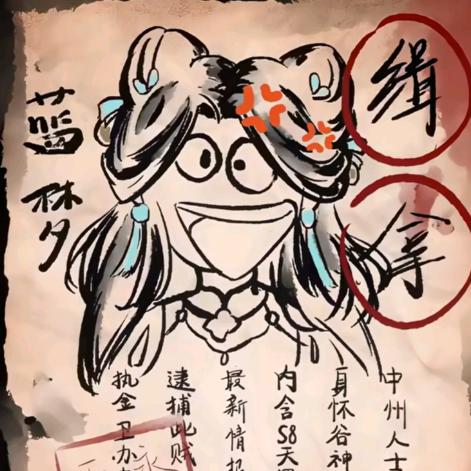 缉拿
蔷梦
中州人士
身怀谷神
内含S8天
最新情报
逮捕此贼
执金卫办
永